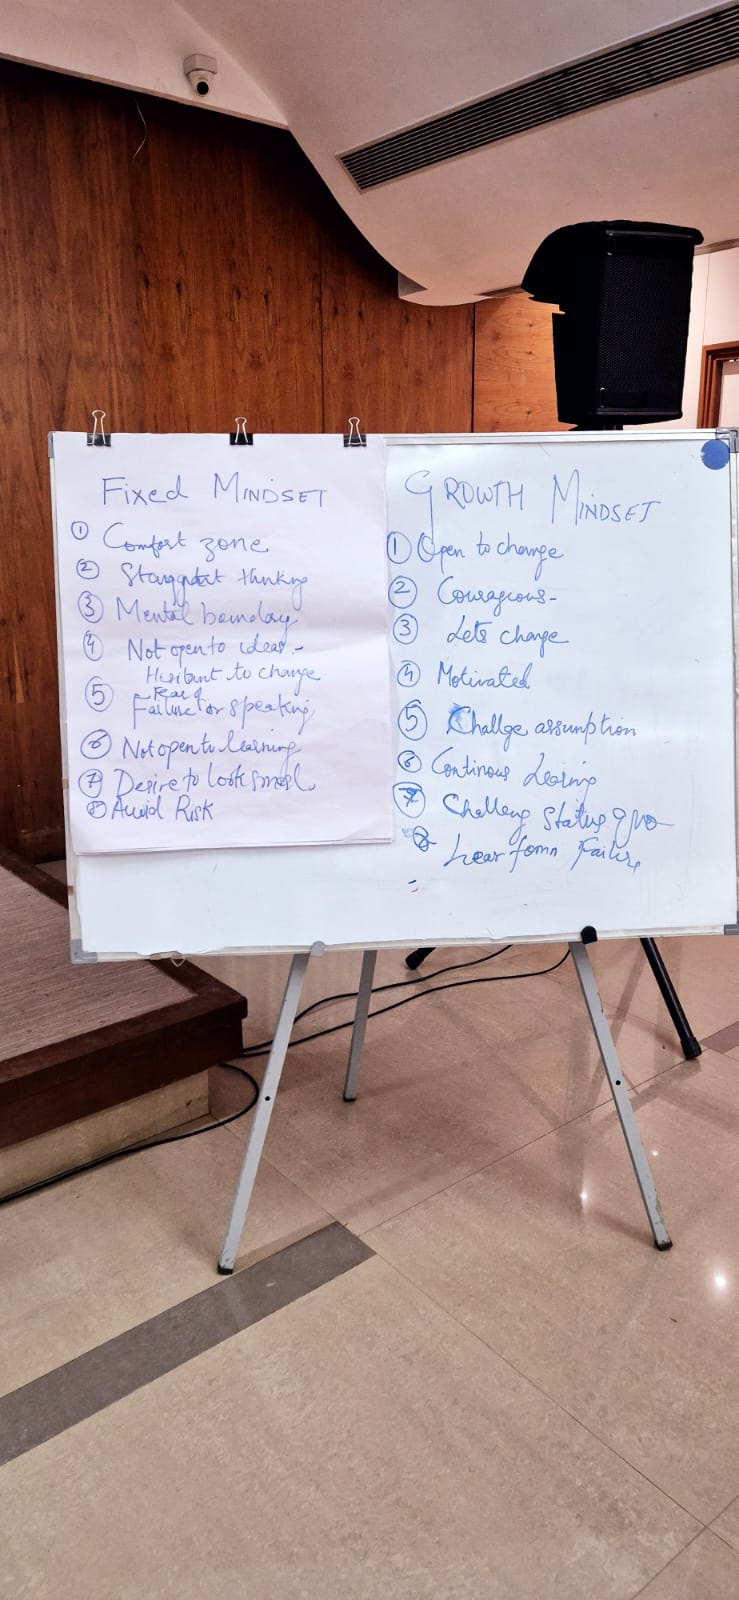 Fixed MINDSET
① Comfort zone
② Stangnent thinking
③ Mental boundary
④ Not open to ideas -
Hesitant to change
⑤ Fear of
Failure or speaking
⑥ Not open to learning
⑦ Desire to look smart
⑧ Avoid Risk
GROWTH MINDSET
① Open to change
② Courageous -
③ Lets change
④ Motivated
⑤ Challge assumption
⑥ Continous Learing
⑦ Challeng Status quo
⑧ Lear form Failure